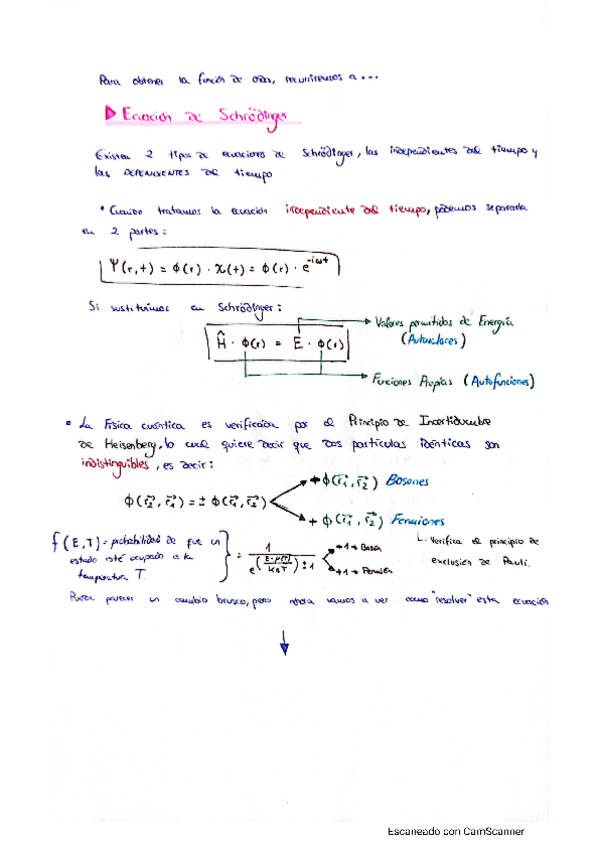 Para obtener la función de onda, recurriremos a...
Ecuación de Schrödinger
Existen 2 tipos de ecuaciones de Schrödinger, las independientes del tiempo y
las DEPENDIENTES del tiempo
* Cuando tratamos la ecuación independiente del tiempo, podemos separarla
en 2 partes:
Ψ(r,t) = ϕ(r) · χ(t) = ϕ(r) · e^{-iωt}
Si sustituimos en Schrödinger:
Valores permitidos de Energía
(Autovalores)
Ĥ · ϕ(r) = E · ϕ(r)
Funciones Propias (Autofunciones)
La Física cuántica es verificada por el Principio de Incertidumbre
de Heisenberg, lo cual quiere decir que dos partículas idénticas son
indistinguibles, es decir:
+ϕ(r₁, r₂) Bosones
ϕ(r₂, r₁) = ± ϕ(r₁, r₂)
+ ϕ(r₁, r₂) Fermiones
Verifica el principio de
exclusión de Pauli.
f(E,T) = probabilidad de que un
estado esté ocupado a la
temperatura T.
= 1 / (e^{(E-μ(T)/K_BT)} ± 1)
-1 → Bosón
+1 → Fermión
Puede parecer un cambio brusco, pero ahora vamos a ver como "resolver" esta ecuación
Escaneado con CamScanner